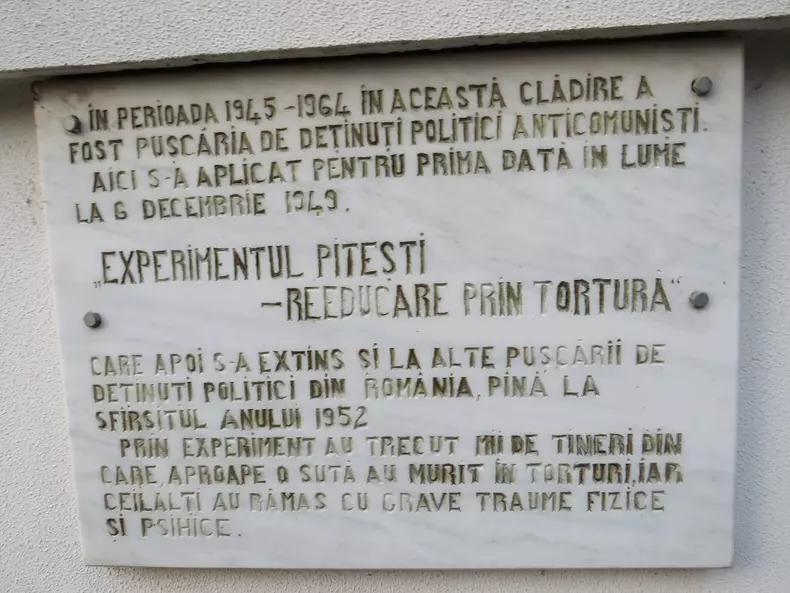 ÎN PERIOADA 1945-1964 ÎN ACEASTĂ CLĂDIRE A
FOST PUȘCĂRIA DE DEȚINUȚI POLITICI ANTICOMUNIȘTI.
AICI S-A APLICAT PENTRU PRIMA DATĂ ÎN LUME
LA 6 DECEMBRIE 1949.
„EXPERIMENTUL PITEȘTI
-REEDUCARE PRIN TORTURĂ"
CARE APOI S-A EXTINS ȘI LA ALTE PUȘCĂRII DE
DEȚINUȚI POLITICI DIN ROMÂNIA, PÎNĂ LA
SFÎRȘITUL ANULUI 1952
PRIN EXPERIMENT AU TRECUT MII DE TINERI DIN
CARE, APROAPE O SUTĂ AU MURIT ÎN TORTURI, IAR
CEILALȚI AU RĂMAS CU GRAVE TRAUME FIZICE
ȘI PSIHICE.